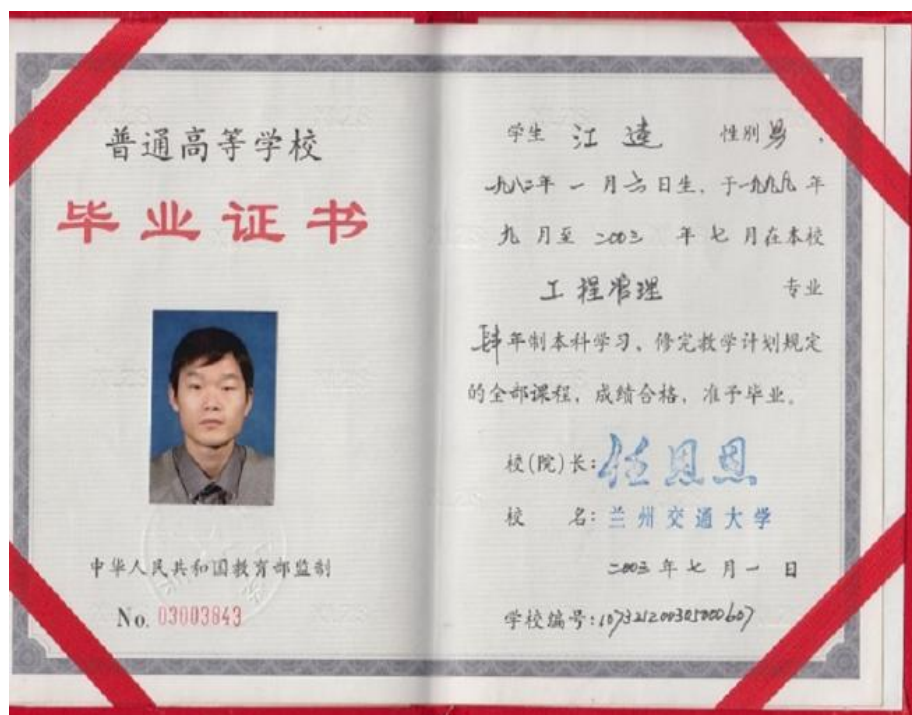 普通高等学校
毕业证书
中华人民共和国教育部监制
No. 03003843
学生 江逵 性别 男 ,
一九八二年 一 月 六 日生, 于一九九九 年
九 月至 二00三 年 七 月在本校
工程管理 专业
肆年制本科学习, 修完教学计划规定
的全部课程, 成绩合格, 准予毕业。
校(院)长: 任恩恩
校 名: 兰州交通大学
二00三 年 七 月 一 日
学校编号: 107321200305000607